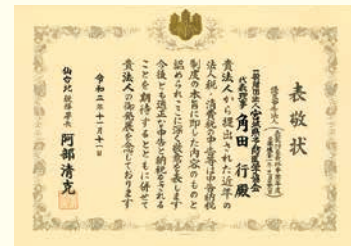 表敬状
一般財団法人宮城県予防医学協会
代表理事 角田 行殿
貴法人から提出された近年の
法人税・消費税の申告等は申告納税
制度の本旨に即した内容のものと
認められここに深く敬意を表します
今後とも適正な申告と納税をされる
ことを期待するとともに併せて
貴法人の御発展を念じております
令和二年十一月十一日
仙台北税務署長 阿部清克